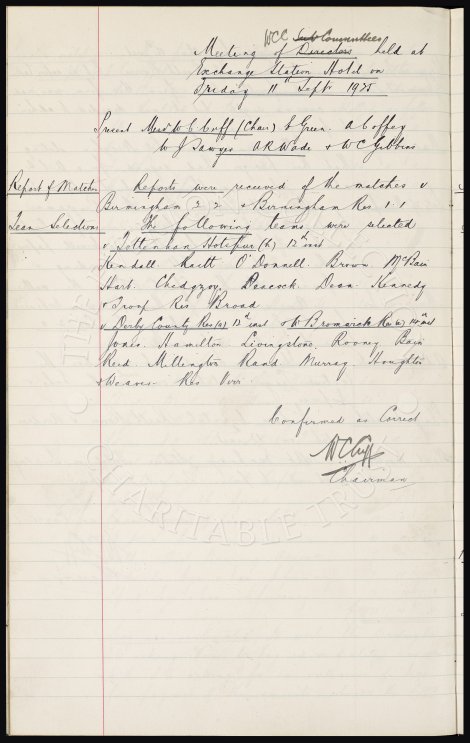 WCC Sub Committees
Meeting of Directors held at
Exchange Station Hotel on
Friday 11th Septr 1925
Present Messrs W C Cuff (Chair) E Green. A Coffey
W J Sawyer A R Wade & W C Gibbins
Report of Matches
Reports were received of the matches v
Birmingham 2 2 & Birmingham Res. 1. 1
Team Selections
The following teams were selected
v Tottenham Hotspur (h) 12th inst
Kendall Raitt O'Donnell. Brown McBain
Hart. Chedgzoy. Peacock. Dean. Kennedy
& Troup Res Broad
v Derby County Res (a) 12th inst & W Bromwich Res (a) 14th inst
Jones. Hamilton. Livingstone. Rooney. Bain
Reid. Millington Rand. Murray. Houghton
& Weaver. Res Virr
Confirmed as Correct
W C Cuff
Chairman
CHARITABLE TRUST